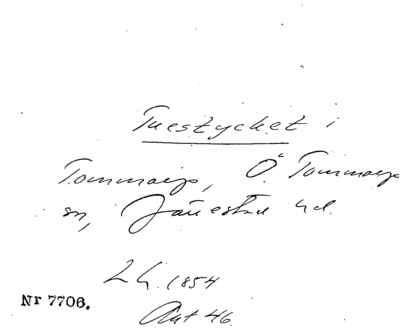 Tuestycket i
Tommarp, Ö. Tommarp
sn, Järrestad hd.
LG. 1854
Nr 7706.
Akt 46